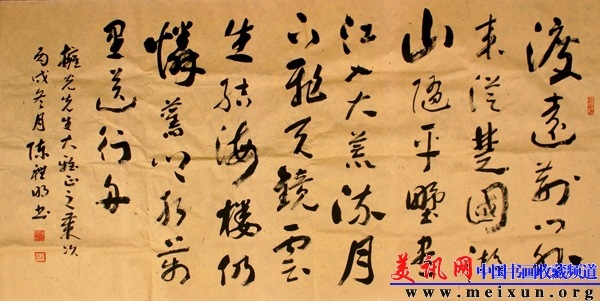 渡遠荊門外
来從楚國游
山隨平野盡
江入大荒流月
下飛天鏡雲
生結海樓仍
憐舊鄉水萬
里送行舟
光先生大雅正之
丙戌冬月 陳禮明書
美讯网
中国书画收藏频道
www.meixun.org